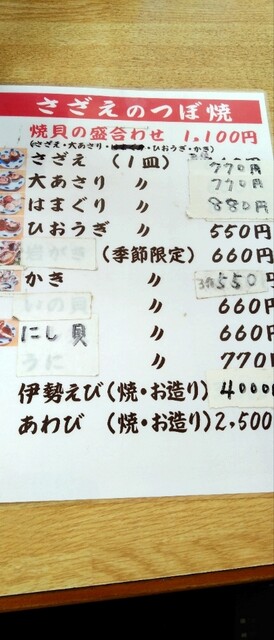 さざえのつぼ焼
焼貝の盛合わせ 1,100円
(さざえ・大あさり・・ひおうぎ・かき)
さざえ (1皿) 770円
大あさり 〃 770円
はまぐり 〃 880円
ひおうぎ 〃 550円
岩がき (季節限定) 660円
かき 〃 3個 550円
いの貝 〃 660円
にし貝 〃 660円
うに 〃 770円
伊勢えび (焼・お造り) 4000円
あわび (焼・お造り) 2,500